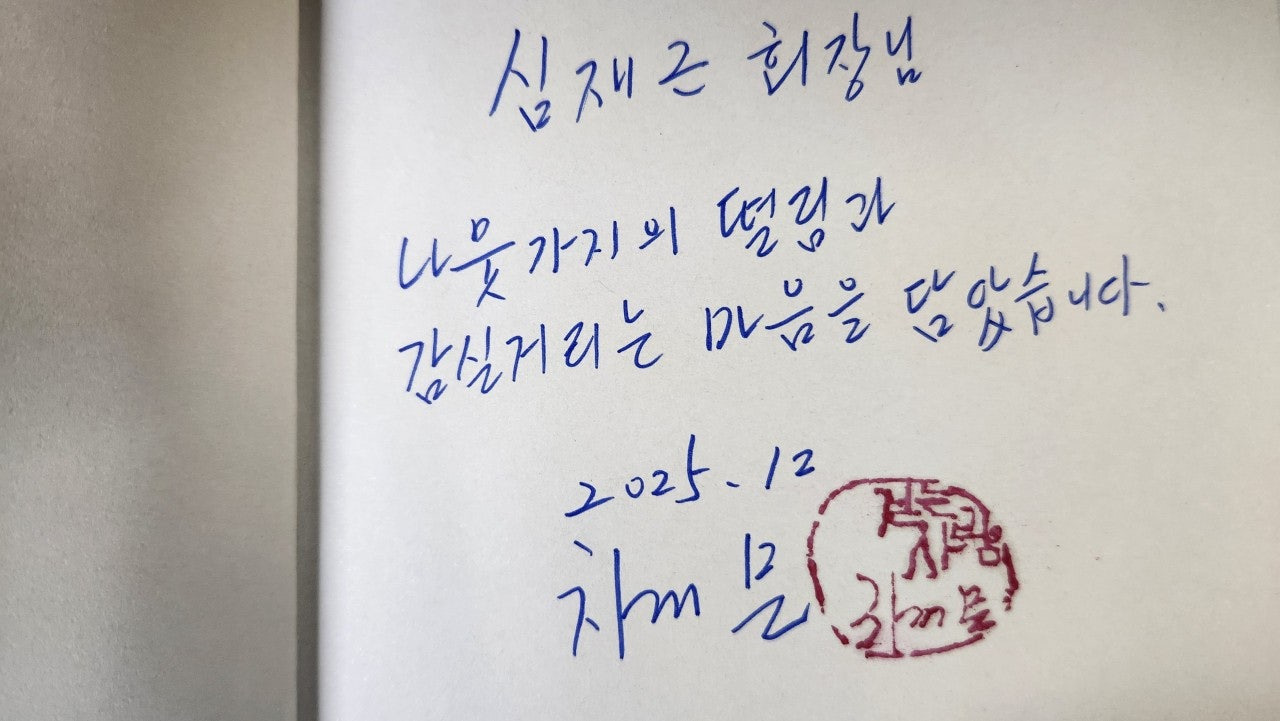 심재근 회장님
나뭇가지의 떨림과
감실거리는 마음을 담았습니다.
2025. 12
차재문
차재문